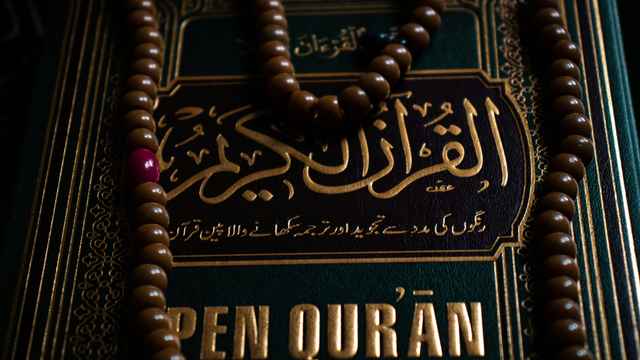 القرآن الكريم
رنگوں کی مدد سے تجوید اور ترجمہ سکھانے والا پین قرآن
PEN QUR'ĀN